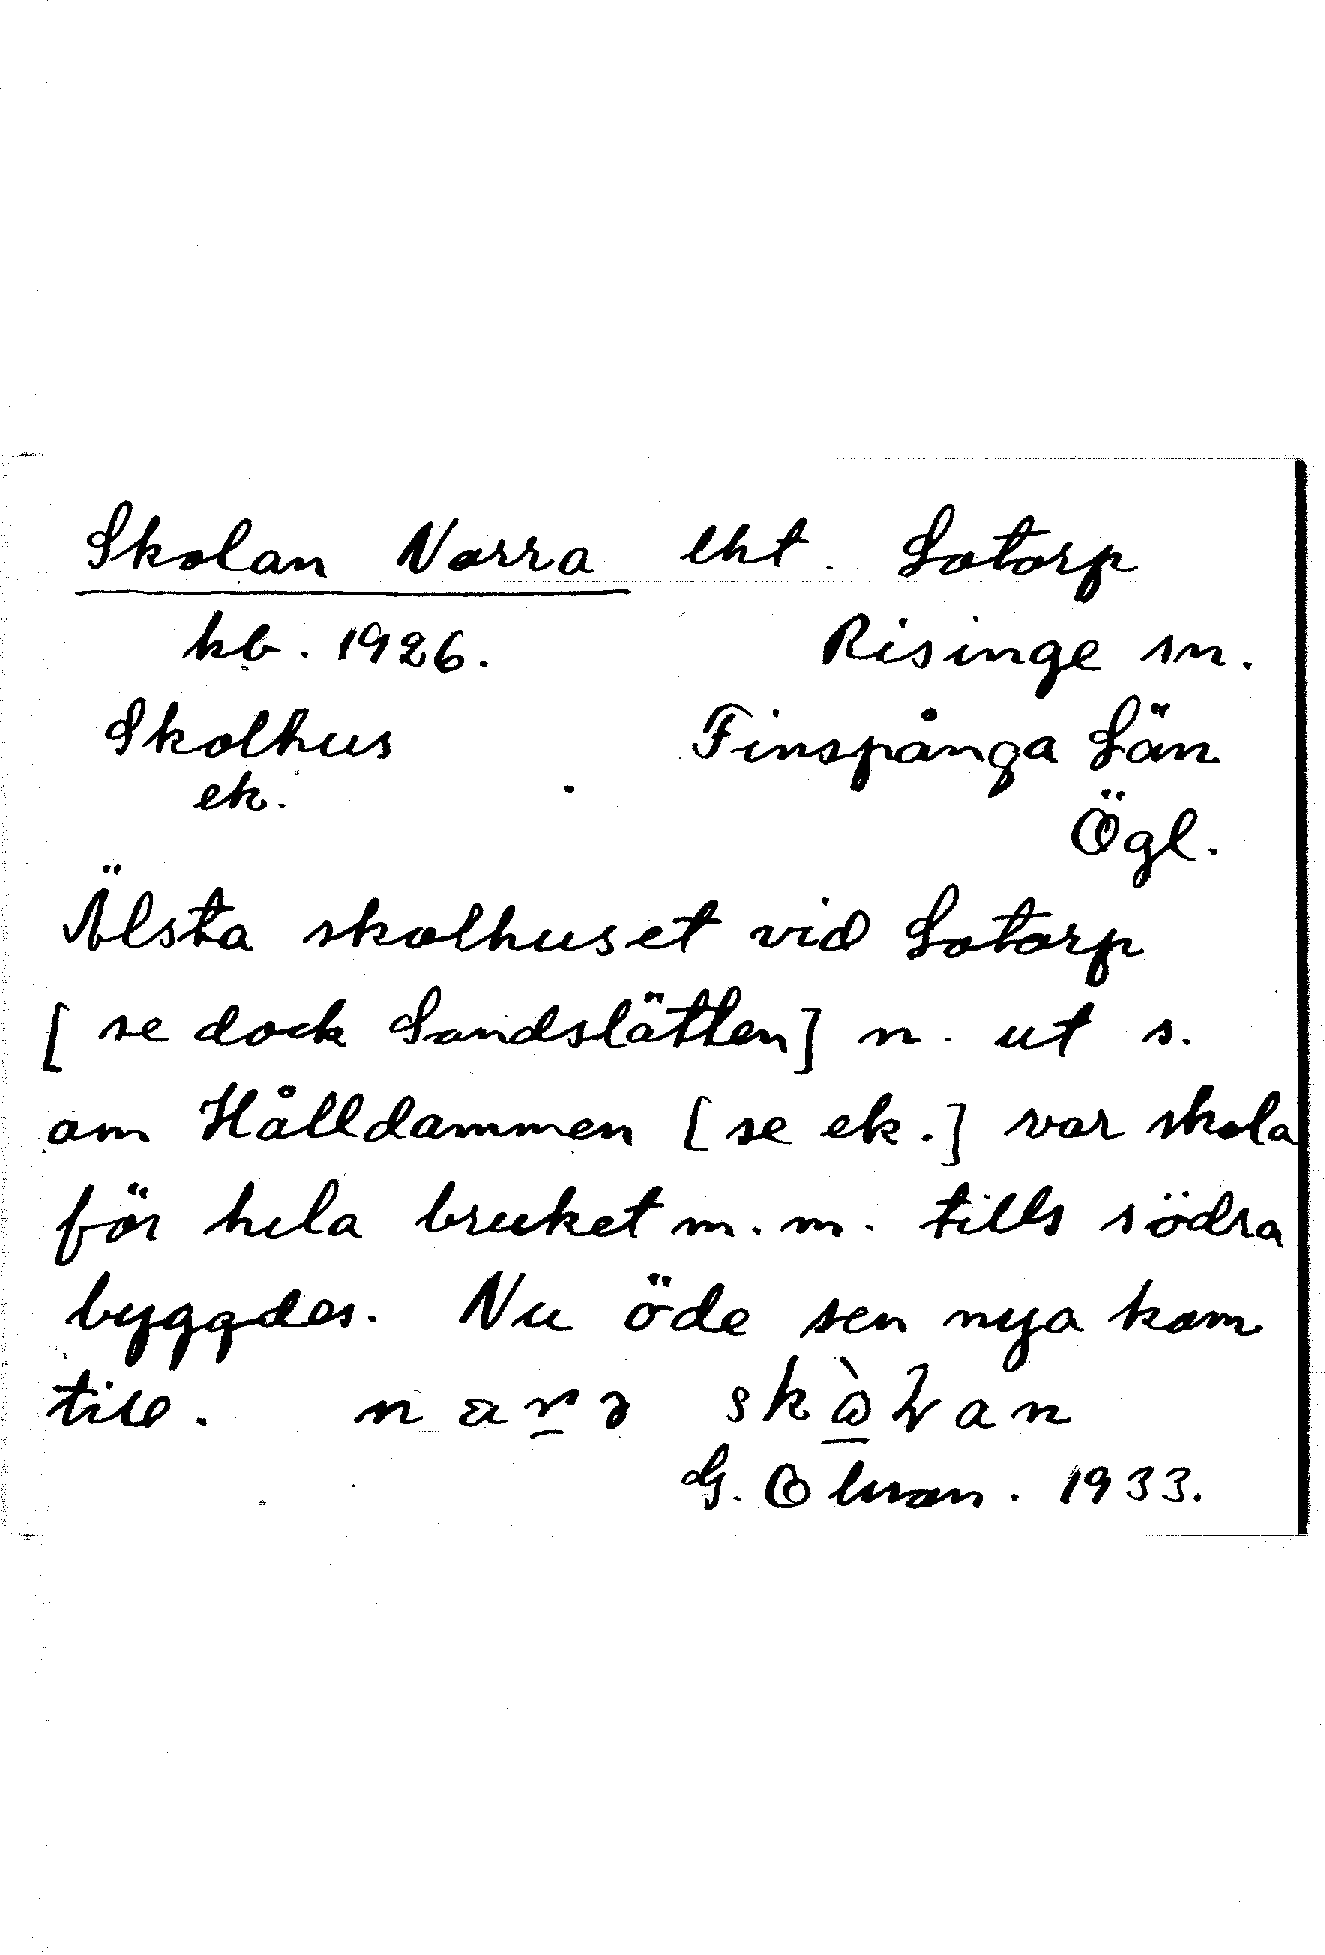 Skolan Norra lht. Lotorp
kb. 1926. Risinge sn.
Skolhus Finspånga Län
ek.
Ögl.
Älsta skolhuset vid Lotorp
[se dock Sandslätten] n. ut s.
om Hålldammen [se ek.] var skola
för hela bruket m.m. tills södra
byggdes. Nu öde sen nya kom
till.
G. Olson. 1933.